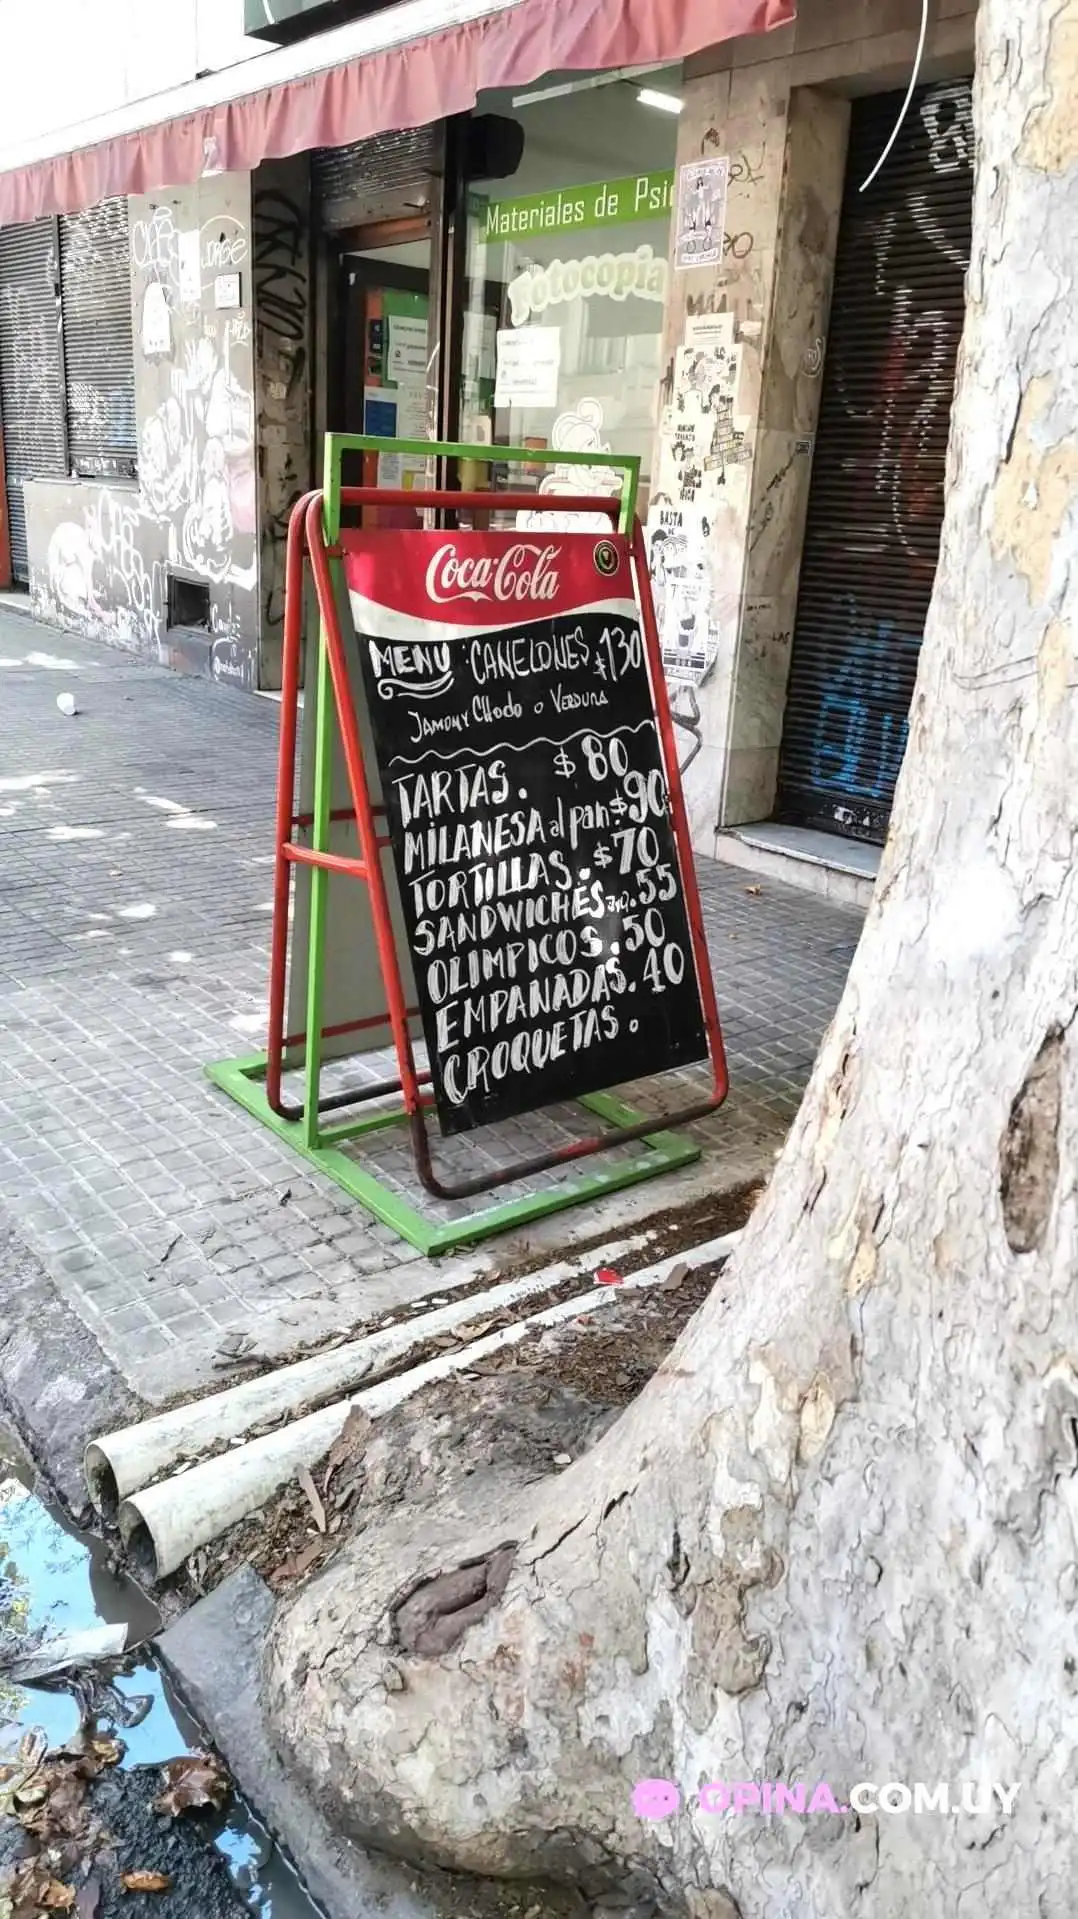 Materiales de Psi
Fotocopia
BASTA
DE
Coca-Cola
MENU CANELONES $130
JAMON Y CHOCLO O VERDURA
TARTAS. $80
MILANESA al pan $90
TORTILLAS. $70
SANDWICHES JyQ. 55
OLIMPICOS. 50
EMPANADAS. 40
CROQUETAS.
OPINA.COM.UY